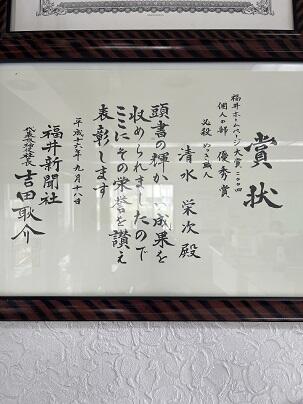 賞状
福井ホームページ大賞二〇〇四
個人の部 優秀賞
必殺 めっき職人
清水 栄次 殿
頭書の輝か
い成果を
収められましたので
ここにその栄誉を讃え
表彰します
平成十六年九月十八日
福井新聞社
吉田耿介